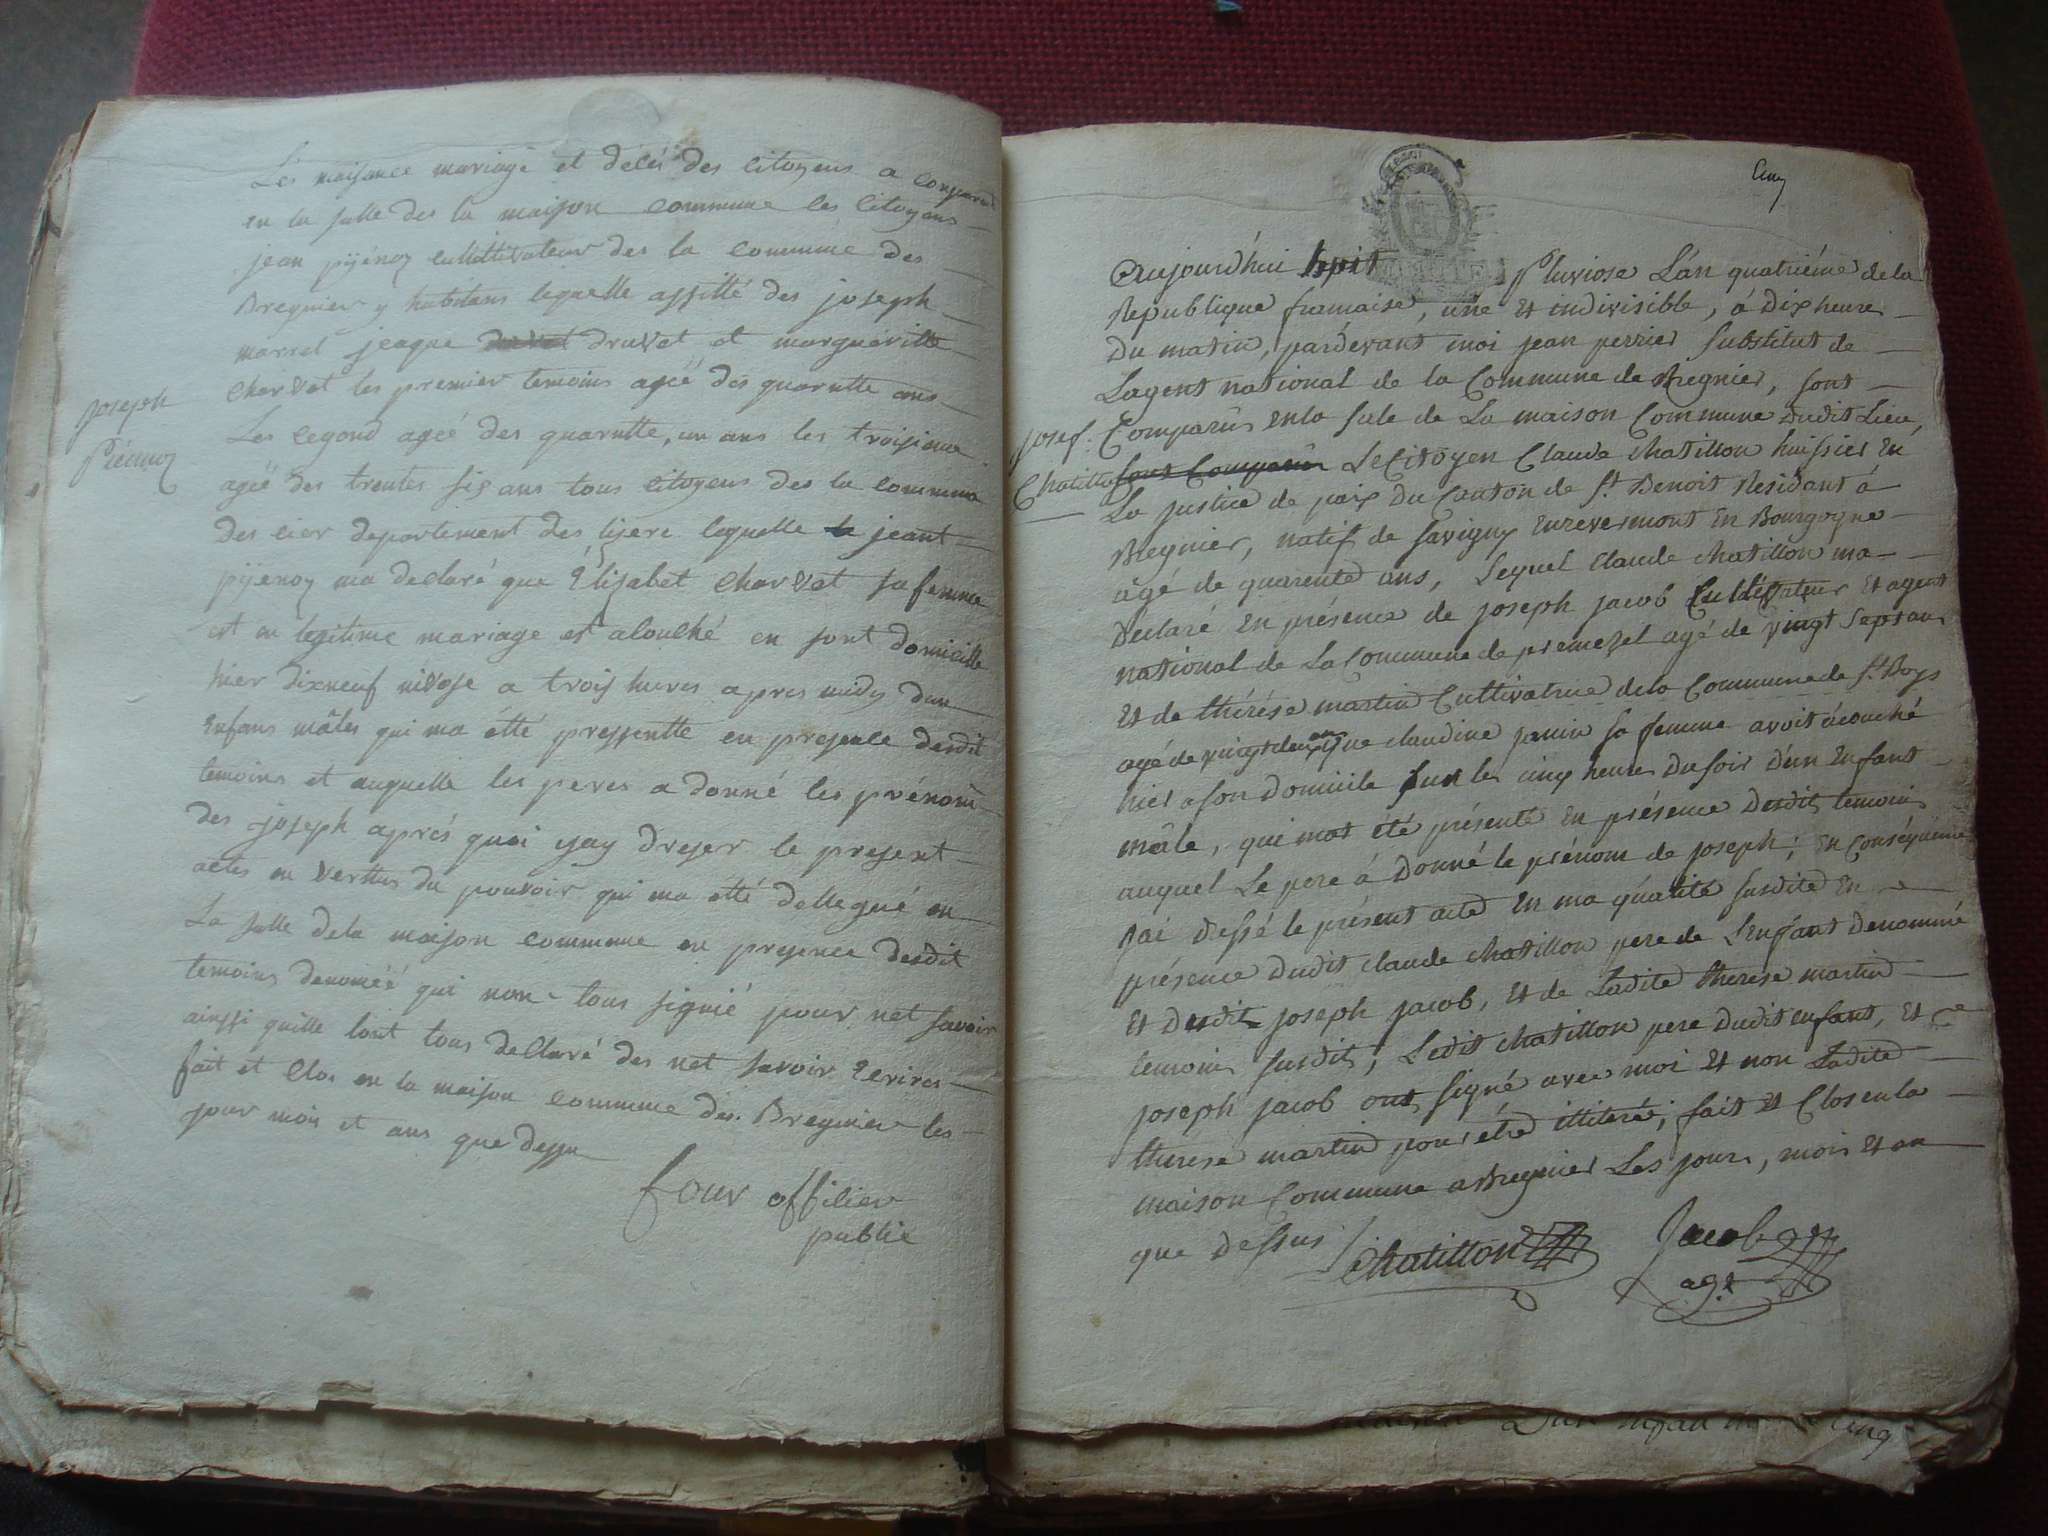 Les naisance mariage et décés des citoyens a comparu
en la salle des la maison commune les citoyens
jean pijénoy culltivateur des la commune des
Bregnier y habitans lequelle assitté des joseph
marret jeaque druvet et margueritte
Charvet les premier temoins ageé des quarutte ans
Les cegond ageé des quarutte, un ans les troisieme
ageé des trentes six ans tous citoyens des la commune
des cier departement des lisere lequelle jeant
pijenoy ma declaré que Elisabet Charvet sa femme
est en legitime mariage est alouché en sont domicille
hier dixneuf nivose a trois hures apres midy dun
Enfans mâles qui ma étté pressentte en presence desdit
temoins et auquelle les peres a donné les prénom
des joseph aprés quoi jay dreser le present
actes en verttus du pouvoir qui ma étté dellegué en
La salle dela maison commune en presence desdit
temoins denomeé qui non tous signié pour net savoir
ainssi quille lont tous declaré des net savoir Ecrires
fait et clos en la maison commune des Bregnier les
jour mois et ans que dessu
four officier
public
joseph
Piémoz
Cinq
Aujourd'hui hpit Pluviose L'an quatriéme de la
Republique francaise, une et indivisible, á dix heure
Du matin, pardevant moi jean perrier substitut de
Lagent national de la Commune de Bregnier, sont
Comparus en la sale de La maison Commune dudit Lieu,
sont Comparus Le Citoyen Claude Chatillon huissier En
La justice de paix du canton de St Benoit Residant á
Bregnier, natif de savigny enrevermont en Bourgogne
âgé de quarente ans, Lequel Claude Chatillon ma
Declaré En présence de joseph jacob Cultivateur et agent
national de La Commune de premeyzel agé de vingt sept ans
et de thérése martin Cultivatrice de la Commune de St Boys
agé de vingt deux ans que claudine janin sa femme avoit âcouché
hier a son domicile sur les cinq heure du soir d'un Enfant
mâle, qui mat été présenté en présence desdit temoins
auquel Le pere á donné le prénom de joseph; en conséquence
jai dressé le présent acte En ma qualité susdite en
présence dudit claude chatillon pere de L'enfant denommé
et dudit joseph jacob, et de Ladite therese martin
temoins susdit; Ledit chatillon pere dudit enfant, et
joseph jacob ont signé avec moi et non Ladite
therese martin pour être illiteré; fait et Clos en la
maison Commune a Bregnier Les jour, mois et an
que dessus
Chatillon
Jacob
agt
josef.
Chatillon